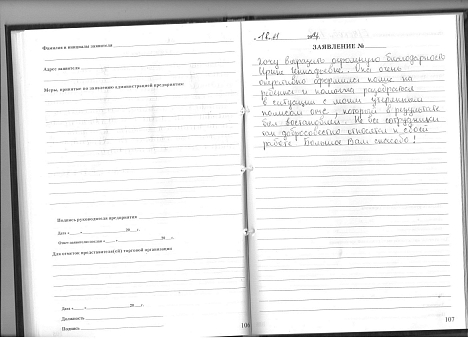 Фамилия и инициалы заявителя
Адрес заявителя
Меры, принятые по заявлению администрацией предприятия:
Подпись руководителя предприятия
Дата « » 20 г.
Ответ заявителю послан « » 20 г.
Для отметок представителя(ей) торговой организации
Дата « » 20 г.
Должность
Подпись
106
ЗАЯВЛЕНИЕ №
Хочу выразить огромную благодарность
Ирине Она очень
оперативно оформила полис на
ребенка и помогла разобраться
в ситуации с моим утерянным
полисом омс, который в результате
был восстановлен. Не все сотрудники
так добросовестно относятся к своей
работе. Большое Вам спасибо!
107